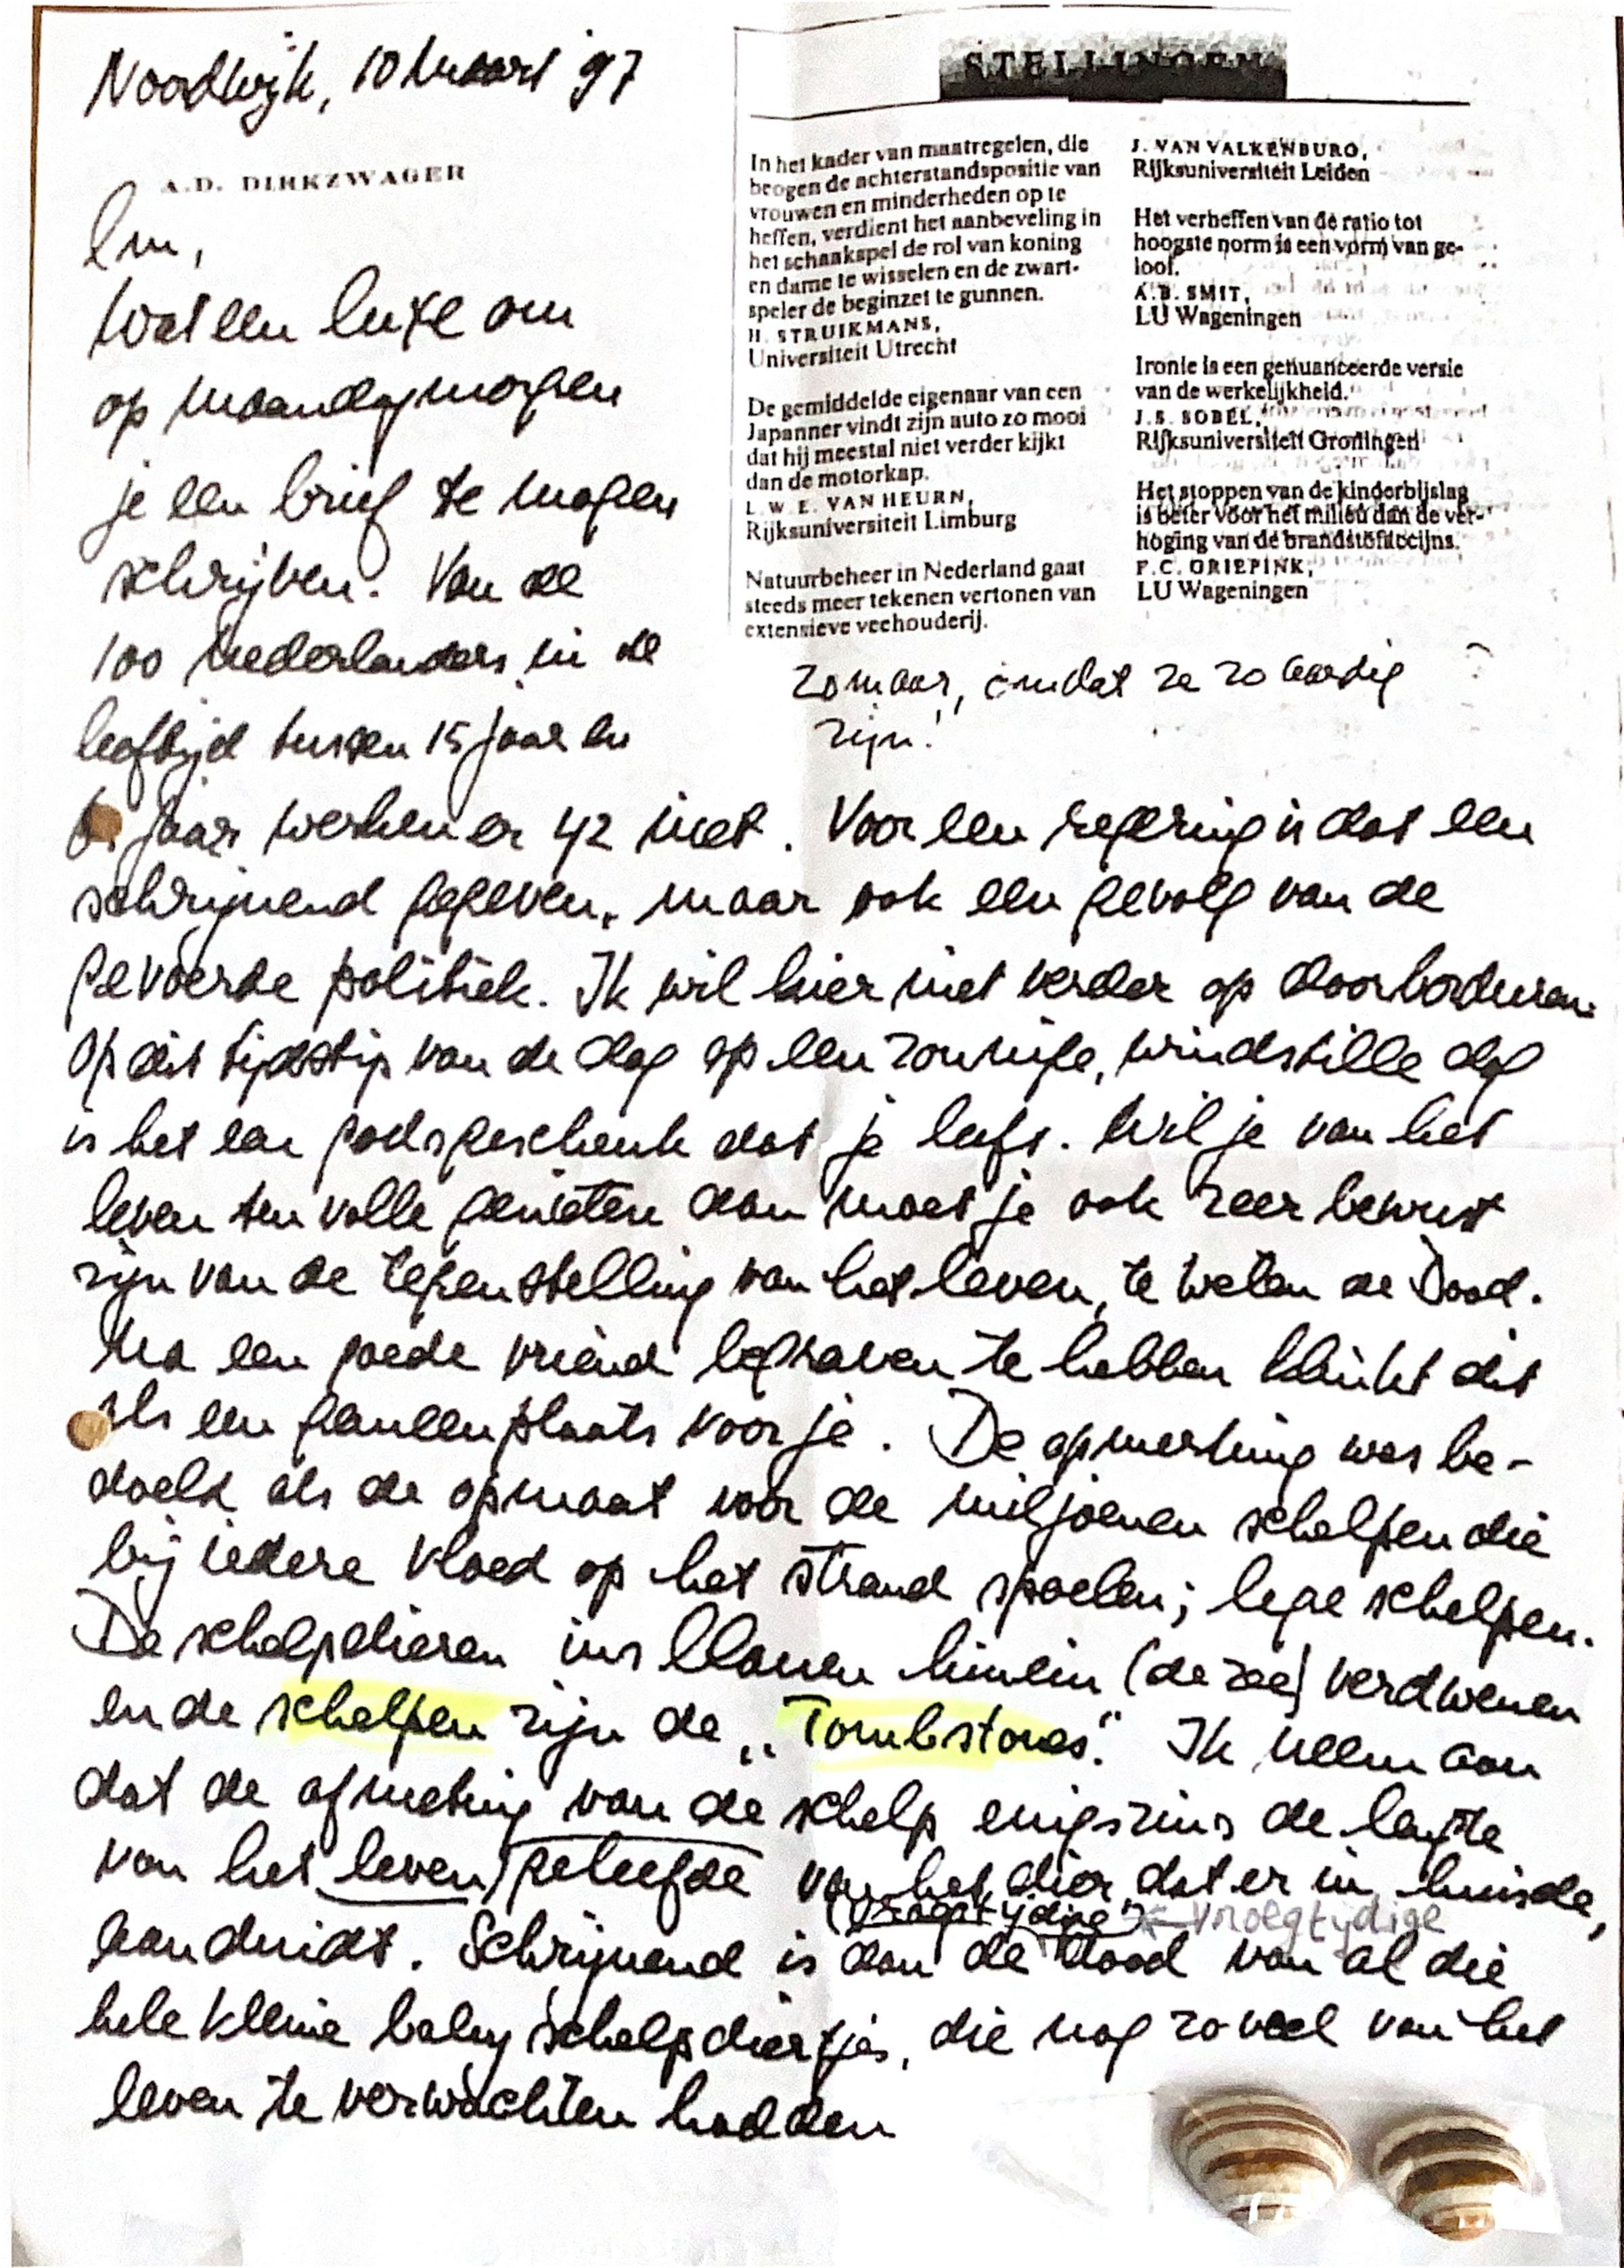 Noordwijk, 10 Maart '97
A.D. DIRKZWAGER
Lm,
Wat een luxe om
op maandagmorgen
je een brief te mogen
schrijven. Van de
100 Nederlanders in de
leeftijd tussen 15 jaar en
jaar werken er 42 niet. Voor een regering is dat een
schrijnend gegeven, maar ook een gevolg van de
gevoerde politiek. Ik wil hier niet verder op doorborduren.
Op dit tijdstip van de dag op een zonnige, windstille dag
is het een godsgeschenk dat je leeft. Wil je van het
leven ten volle genieten dan moet je ook zeer bewust
zijn van de tegenstelling van het leven, te weten de Dood.
Na een goede vriend begraven te hebben klinkt dit
als een gemeenplaats voor je. De opmerking was be-
doeld als de opmaat voor de miljoenen schelpen die
bij iedere vloed op het strand spoelen; lege schelpen.
De schelpdieren ins blauen hinein (de zee) verdwenen
en de schelpen zijn de „Tombstones". Ik neem aan
dat de afmeting van de schelp enigszins de lengte
van het leven/geleefde van het dier dat er in huisde,
(vroegtijdige) ← vroegtijdige
aanduidt. Schrijnend is dan de dood van al die
hele kleine baby schelpdiertjes, die nog zoveel van het
leven te verwachten hadden
STELLINGEN
In het kader van maatregelen, die
beogen de achterstandspositie van
vrouwen en minderheden op te
heffen, verdient het aanbeveling in
het schaakspel de rol van koning
en dame te wisselen en de zwart-
speler de beginzet te gunnen.
H. STRUIKMANS,
Universiteit Utrecht
De gemiddelde eigenaar van een
Japanner vindt zijn auto zo mooi
dat hij meestal niet verder kijkt
dan de motorkap.
L.W.E. VAN HEURN,
Rijksuniversiteit Limburg
Natuurbeheer in Nederland gaat
steeds meer tekenen vertonen van
extensieve veehouderij.
J. VAN VALKENBURG,
Rijksuniversiteit Leiden
Het verheffen van de ratio tot
hoogste norm is een vorm van ge-
loof.
A.B. SMIT,
LU Wageningen
Ironie is een genuanceerde versie
van de werkelijkheid.
J.S. SOBEL,
Rijksuniversiteit Groningen
Het stoppen van de kinderbijslag
is beter voor het milieu dan de ver-
hoging van de brandstofaccijns.
F.C. GRIEPINK,
LU Wageningen
Zomaar, omdat ze zo aardig
zijn!